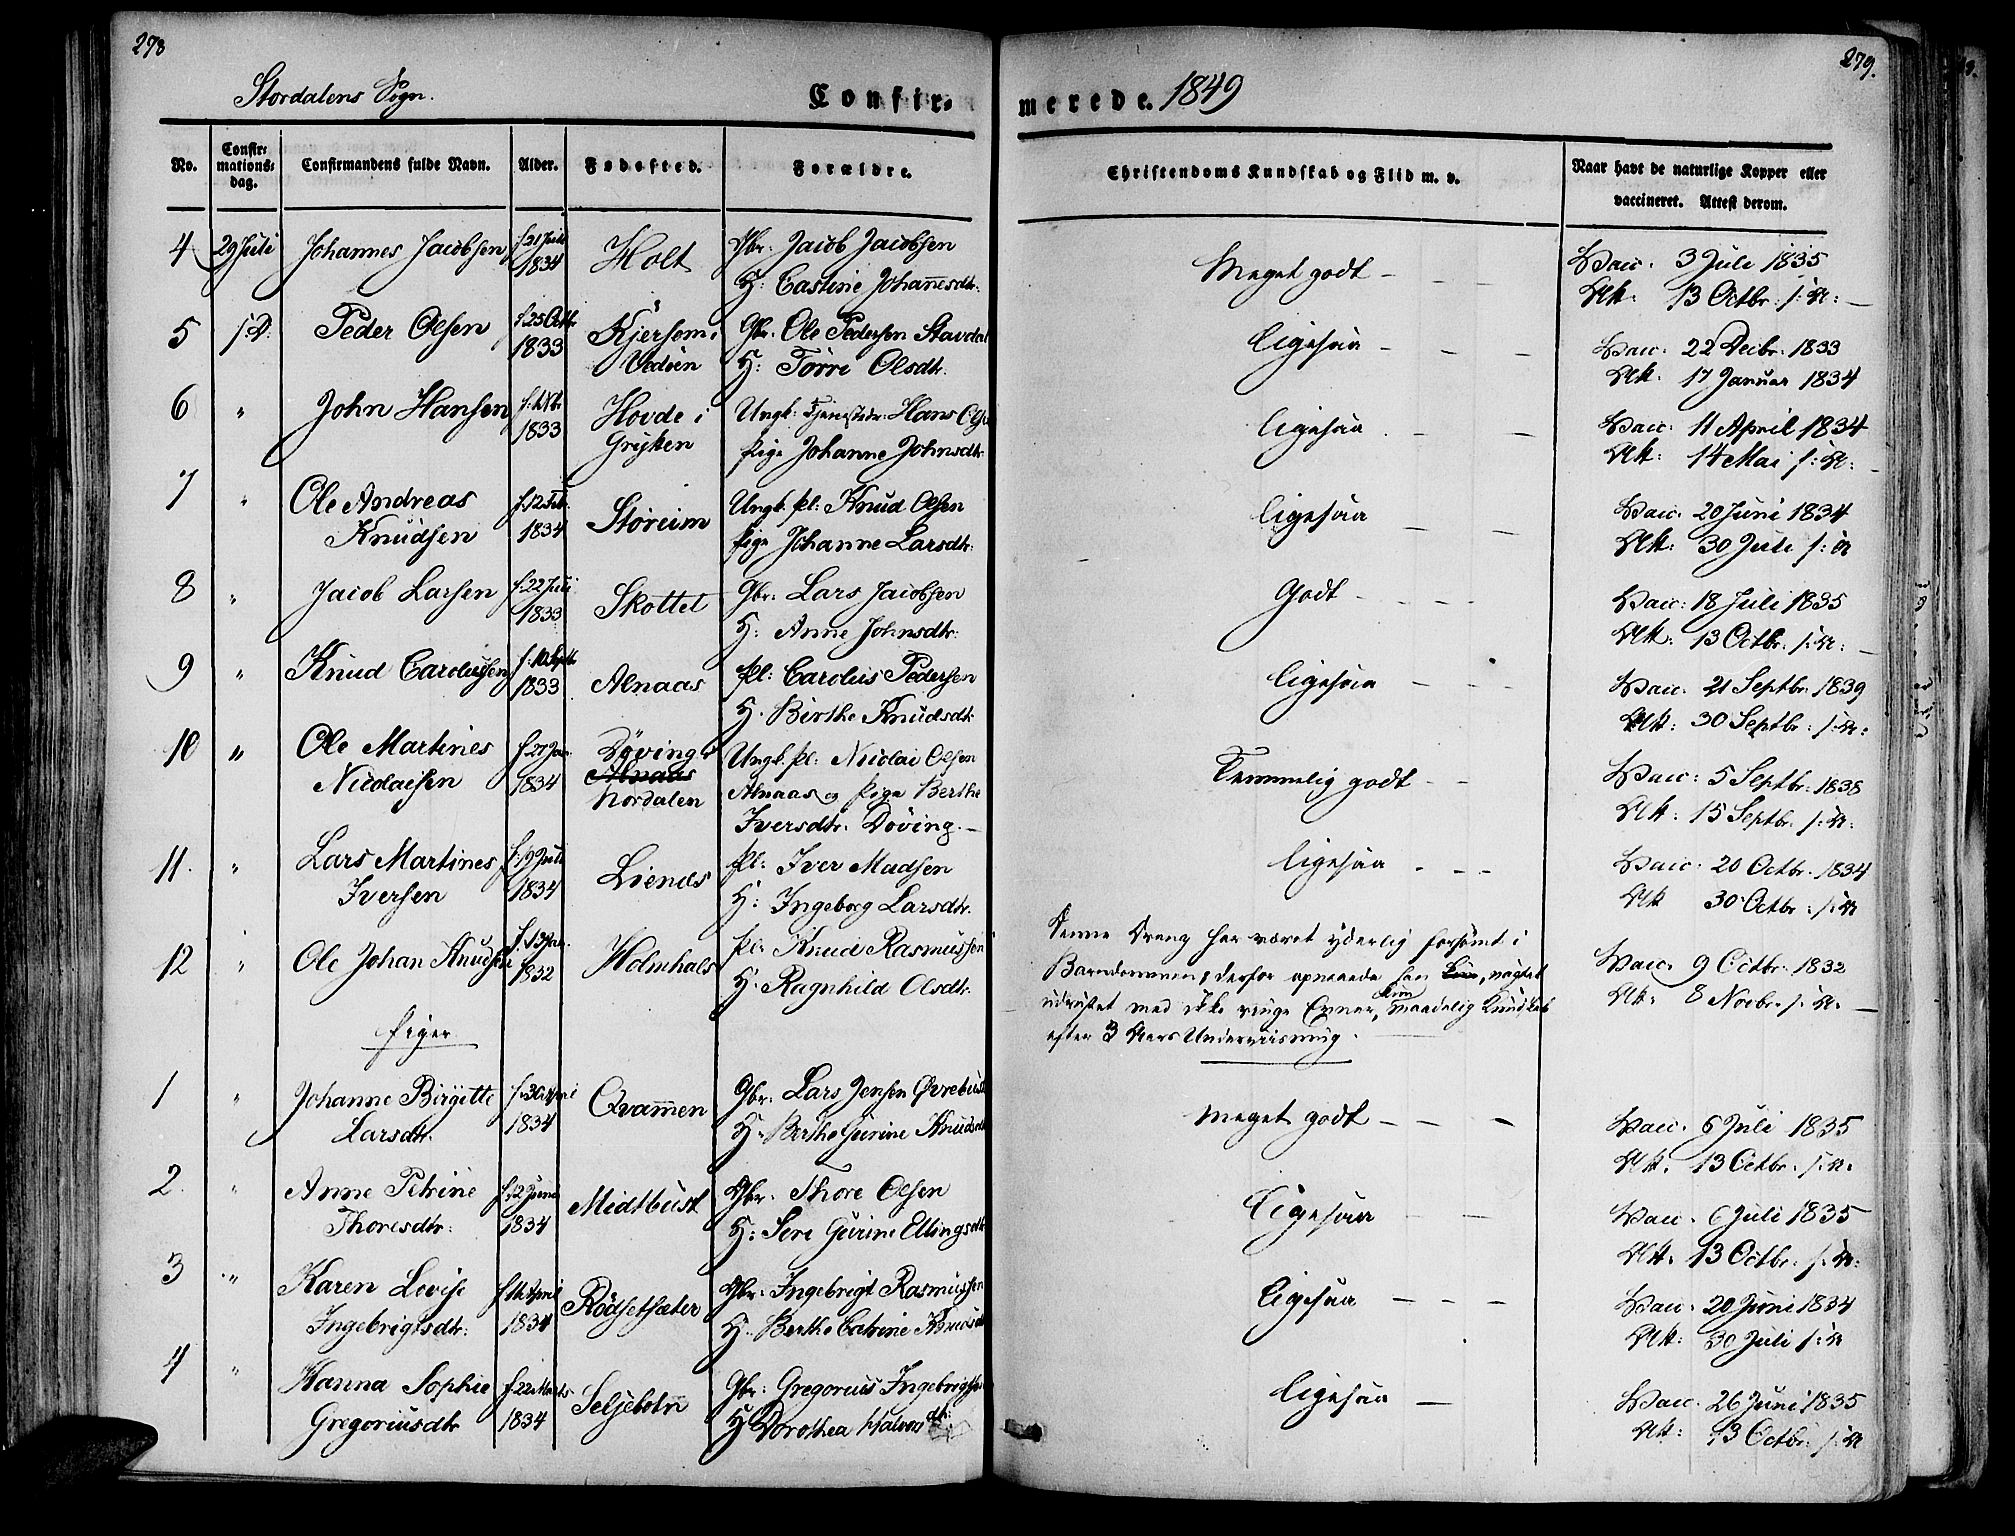 278
279.
Stordalens Sogn.
Confir-
merede. 1849
No.
Confir-
mations-
dag.
Confirmandens fulde Navn.
Alder.
Fødested.
Forældre.
Christendoms Kundskab og Flid m. v.
Naar havt de naturlige Kopper eller
vaccineret. Attest derom.
4 29 Juli Johannes Jacobsen f. 21 Juli 1834 Holt Gbr. Jacob Jacobsen
H: Castine Johannesdtr.
Meget godt - - -
Vacc. 3 Juli 1835
Att. 13 Octbr. s: A: -
5 s.D. Peder Olsen f. 25 Octbr 1833 Kjersem i
Vedøen
Gbr. Ole Pedersen Stavdal
H: Torri Olsdtr.
ligesaa - - -
Vacc. 22 Decbr. 1833
Att. 17 Januar 1834
6 " John Hansen 1833 Hovde i
Grytten
Ungk: Tjenestedr: Hans Ols
Pige Johanne Johnsdtr
ligesaa - -
Vacc. 11 April 1834
Att. 14 Mai s: A: -
7 " Ole Andreas
Knudsen
f. 12 Feb. 1834 Støreim
Ungk. Pl: Knud Olsen
Pige Johanne Larsdtr.
ligesaa - -
Vacc. 20 Juni 1834
Att: 30 Juli s: A
8 " Jacob Larsen f. 22 Juli 1833 Skottet
Gbr. Lars Jacobsen
H: Anne Johnsdtr.
Godt - - - -
Vacc: 18 Juli 1835
Att: 13 Octbr. s: A: -
9 " Knud Carolussen f. 10 Septb 1833 Alnaas
Pl: Carolus Pedersen
H. Birthe Knudsdtr
ligesaa - - -
Vacc. 21 Septbr. 1839
Att: 30 Septbr. s: A:
10 " Ole Martines
Nicolaisen
f. 27 Jan. 1834 Døving i
Alnaas
Nordalen
Ungk. Pl: Nicolai Olsen
Alnaas og Pige Berthe
Iversdtr. Døving. -
Temmelig godt - -
Vacc: 5 Septbr. 1838
Att: 15 Septbr. s: A:
11. " Lars Martines
Iversen
f. 19 Juli 1834 Liends
Pl: Iver Madsen
H: Ingeborg Larsdtr.
ligesaa - - -
Vacc. 20 Octbr. 1834
Att 30 Octbr. s: A
12 " Ole Johan Knudsen 1832 Holmhals
Pl: Knud Rasmussen
H. Ragnhild Olsdtr.
Denne Dreng har været yderlig forsømt i
Barndommen, derfor opnaaede han kun, uagtet
udrustet med ikke ringe Evner, kun maadelig Kundskab
efter 3 Aars Underviisning.
Vacc. 9 Octbr. 1832
Att. 8 Novbr. s: A: -
Piger
1 " Johanne Birgitte
Larsdtr.
f. 30 April 1834 Qvammen
Gbr. Lars Jensen Øvrebust
H. Berthe Gurine Knudsdtr
meget godt - - -
Vacc. 6 Juli 1835
Att. 13 Octbr. s: A.
2. " Anne Petrine
Thoresdtr.
f. 12 Juni 1834 Midtbust
Gbr. Thore Olsen
H: Seri Gurine Ellingsdtr
Ligesaa - -
Vacc. 6 Juli 1835
Att. 13 Octbr. s: A:
3 " Karen Lovise
Ingebrigtsdtr.
f. 16 April 1834 Rødsetsæter
Gbr. Ingebrigt Rasmussen
H. Berthe Catrine Knudsdtr
Ligesaa - - -
Vacc. 20 Juni 1834
Att: 30 Juli s: A
4 " Hanna Sophie
Gregoriusdtr
f. 22 Marts 1834 Seljebotn
Gbr: Gregorius Ingebrigtsen
H Dorothea Halvorsdtr.
ligesaa -
Vacc. 26 Juni 1835
Att: 13 Octbr. s: A